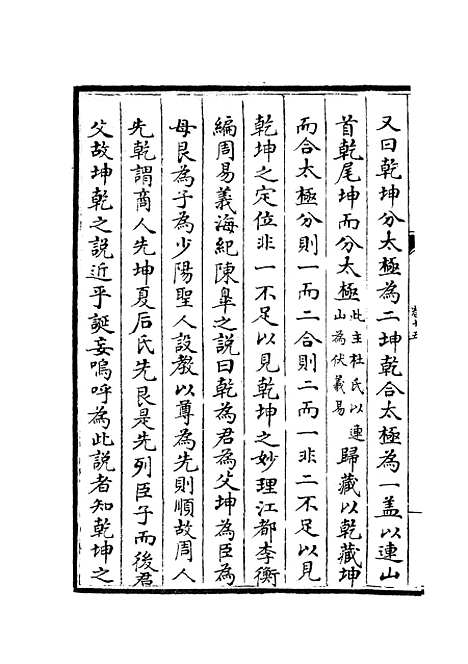 又曰乾坤分太極為二坤乾合太極為一盖以連山
首乾尾坤而分太極此主杜氏以連山為伏羲易歸藏以乾藏坤
而合太極分則一而二合則二而一非二不足以見
乾坤之定位非一不足以見乾坤之妙理江都李衡
編周易義海紀陳臯之說曰乾為君為父坤為臣為
母艮為子為少陽聖人設教以尊為先則順故周人
先乾謂商人先坤夏后氏先艮是先列臣子而後君
父故坤乾之說近乎誕妄嗚呼為此說者知乾坤之
卷十五